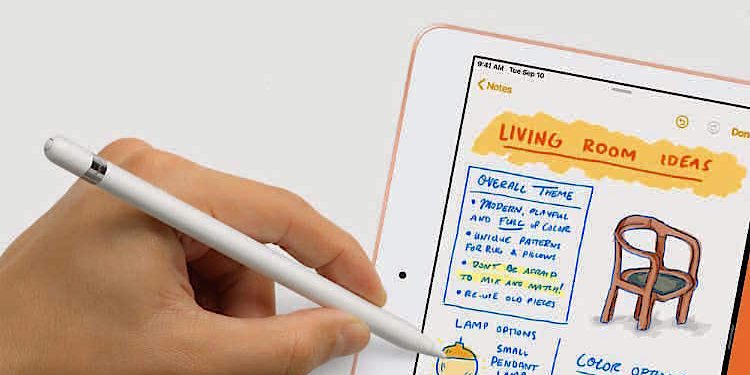 9:41 AM Tue Sep 10
Notes
LIVING ROOM IDEAS
OVERALL THEME
• MODERN, PLAYFUL
AND FULL OF COLOR
• UNIQUE PATTERNS
FOR RUG & PILLOWS
• DON'T BE AFRAID
TO MIX AND MATCH!
• RE-USE OLD PIECES
LAMP OPTIONS
SMALL
PENDANT
COLOR